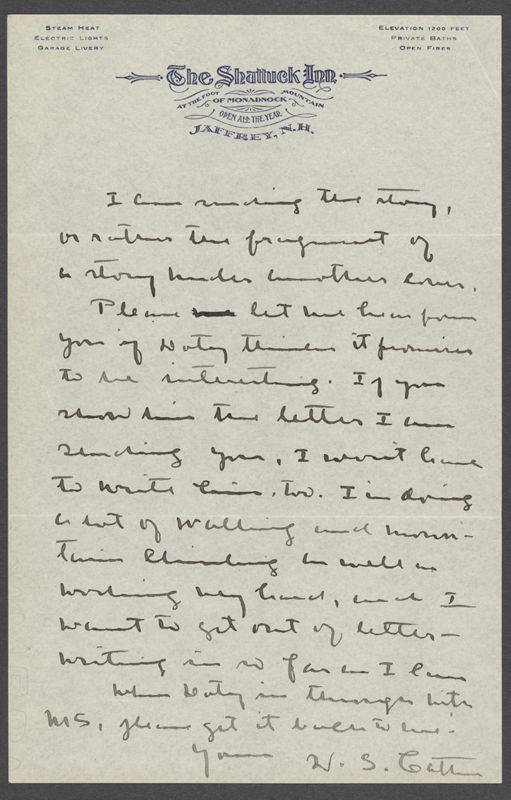 STEAM HEAT
ELECTRIC LIGHTS
GARAGE LIVERY
ELEVATION 1200 FEET
PRIVATE BATHS
OPEN FIRES
The Shattuck Inn
AT THE FOOT OF MONADNOCK MOUNTAIN
OPEN ALL THE YEAR
JAFFREY, N.H.
I am sending the story,
or rather the fragment of
a story under another cover.
Please let me hear from
you if Doty thinks it promises
to be interesting. If you
show him the letter I am
sending you, I won't have
to write him, too. I'm doing
a lot of walking and moun-
tain climbing as well as
working very hard, and I
want to get out of letter-
writing in so far as I can
When Doty is through with
MS, please get it back to me.
Yours W. S. Cather